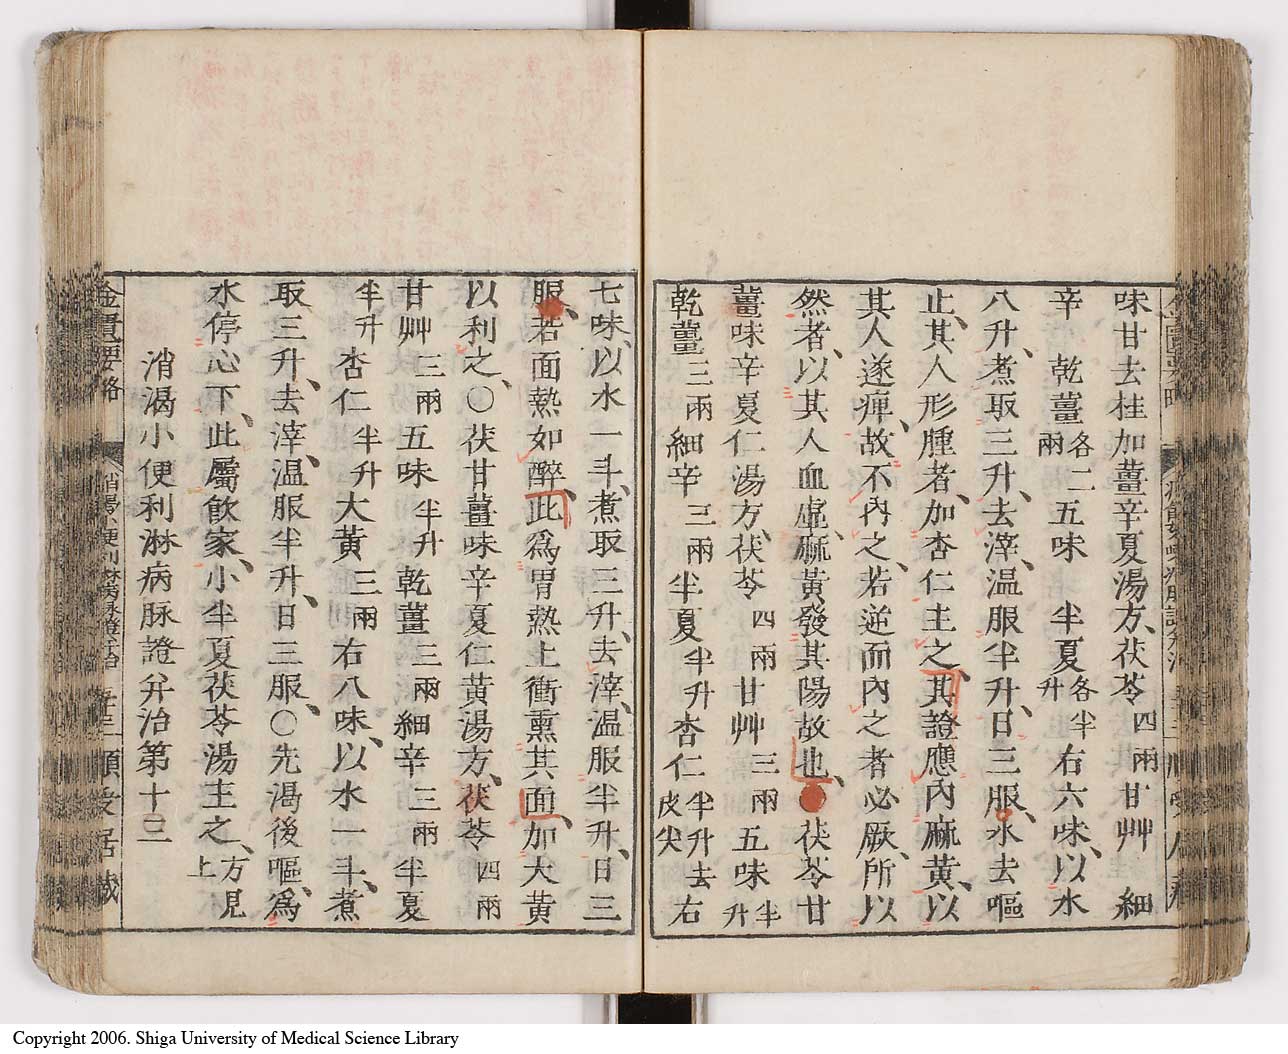 味甘去桂加薑辛夏湯方、茯苓四兩甘艸 細
辛 乾薑各二兩五味 半夏各半升右六味、以水
八升、煮取三升、去滓、溫服半升、日三服、水去嘔
止、其人形腫者、加杏仁主之、其證應內麻黃、以
其人遂痺、故不內之、若逆而內之者必厥、所以
然者、以其人血虛、麻黃發其陽故也、茯苓甘
薑味辛夏仁湯方、茯苓四兩甘艸三兩五味半升
乾薑三兩細辛三兩半夏半升杏仁半升去皮尖右
七味、以水一斗、煮取三升、去滓、溫服半升、日三
服、若面熱如醉、此爲胃熱上衝熏其面、加大黃
以利之、○茯甘薑味辛夏仁黃湯方、茯苓四兩
甘艸三兩五味半升乾薑三兩細辛三兩半夏
半升杏仁半升大黃三兩右八味、以水一斗、煮
取三升、去滓、溫服半升、日三服、○先渴後嘔、爲
水停心下、此屬飲家、小半夏茯苓湯主之、方見上
消渴小便利淋病脉證并治第十三
金匱要略
Copyright 2006. Shiga University of Medical Science Library